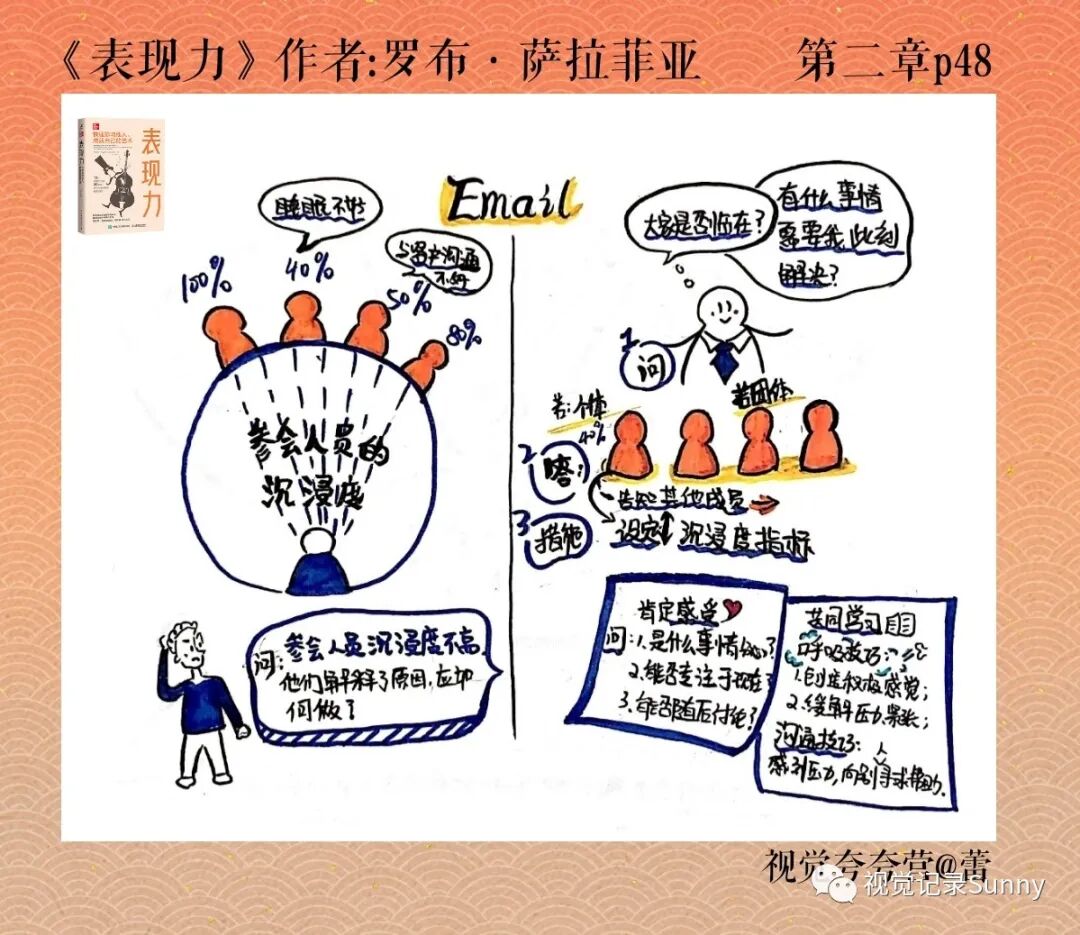 《表现力》作者:罗布·萨拉菲亚 第二章p48
表现力
Email
睡眠不好
与客户沟通
不好
100%
40%
50%
80%
参会人员的
沉浸度
问:参会人员沉浸度不高,
他们解释了原因,应如
何做?
大家是否临在?
有什么事情
需要我此刻
解决?
1
问
若:个体
40%
若团体
2
答:
告知其他成员
3
措施
设定 沉浸度指标
肯定感受
问:1.是什么事情
2.能否专注于现在?
3.能否随后讨论?
共同学习
呼吸技巧:
1.创造积极感觉;
2.缓解压力、紧张;
沟通技巧:
感到压力,向别人寻求帮助.
视觉夸夸营@蕾
视觉记录Sunny